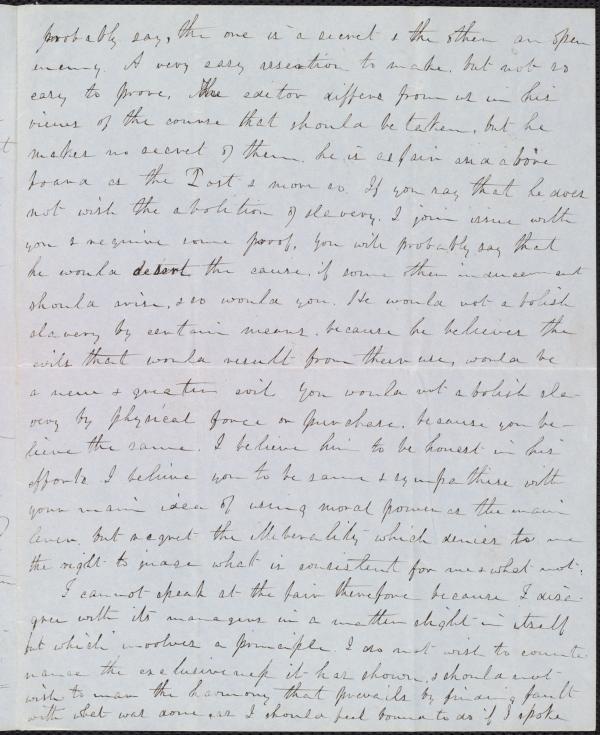 probably say, the one is a secret & the other an open
enemy. A very easy assertion to make, but not so
easy to prove. The editor differs from us in his
views of the course that should be taken, but he
makes no secret of them, he is as fair and above
board as the Post & more so. If you say that he does
not wish the abolition of slavery, I join issue with
you & require some proof. You will probably say that
he would desert the cause, if some other inducement
should arise, & so would you. He would not abolish
slavery by certain means, because he believes the
evils that would result from their use, would be
a new & greater evil. You would not abolish sla-
very by physical force or purchase, because you be-
lieve the same. I believe him to be honest in his
efforts. I believe you to be same & sympathise with
your main idea of using moral power as the main
lever, but regret the illiberality which denies to me
the right to judge what is consistent for me & what not.
I cannot speak at the fair therefore because I disa-
gree with its managers in a matter slight in itself
but which involves a principle. I do not wish to counte-
nance the exclusiveness it has shown, & should not
wish to mar the harmony that prevails by finding fault
with what was done, as I should feel bound to do if I spoke